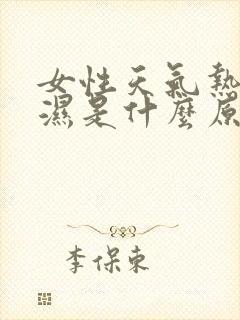 女性天氣熱
濕是什麼原
李保東